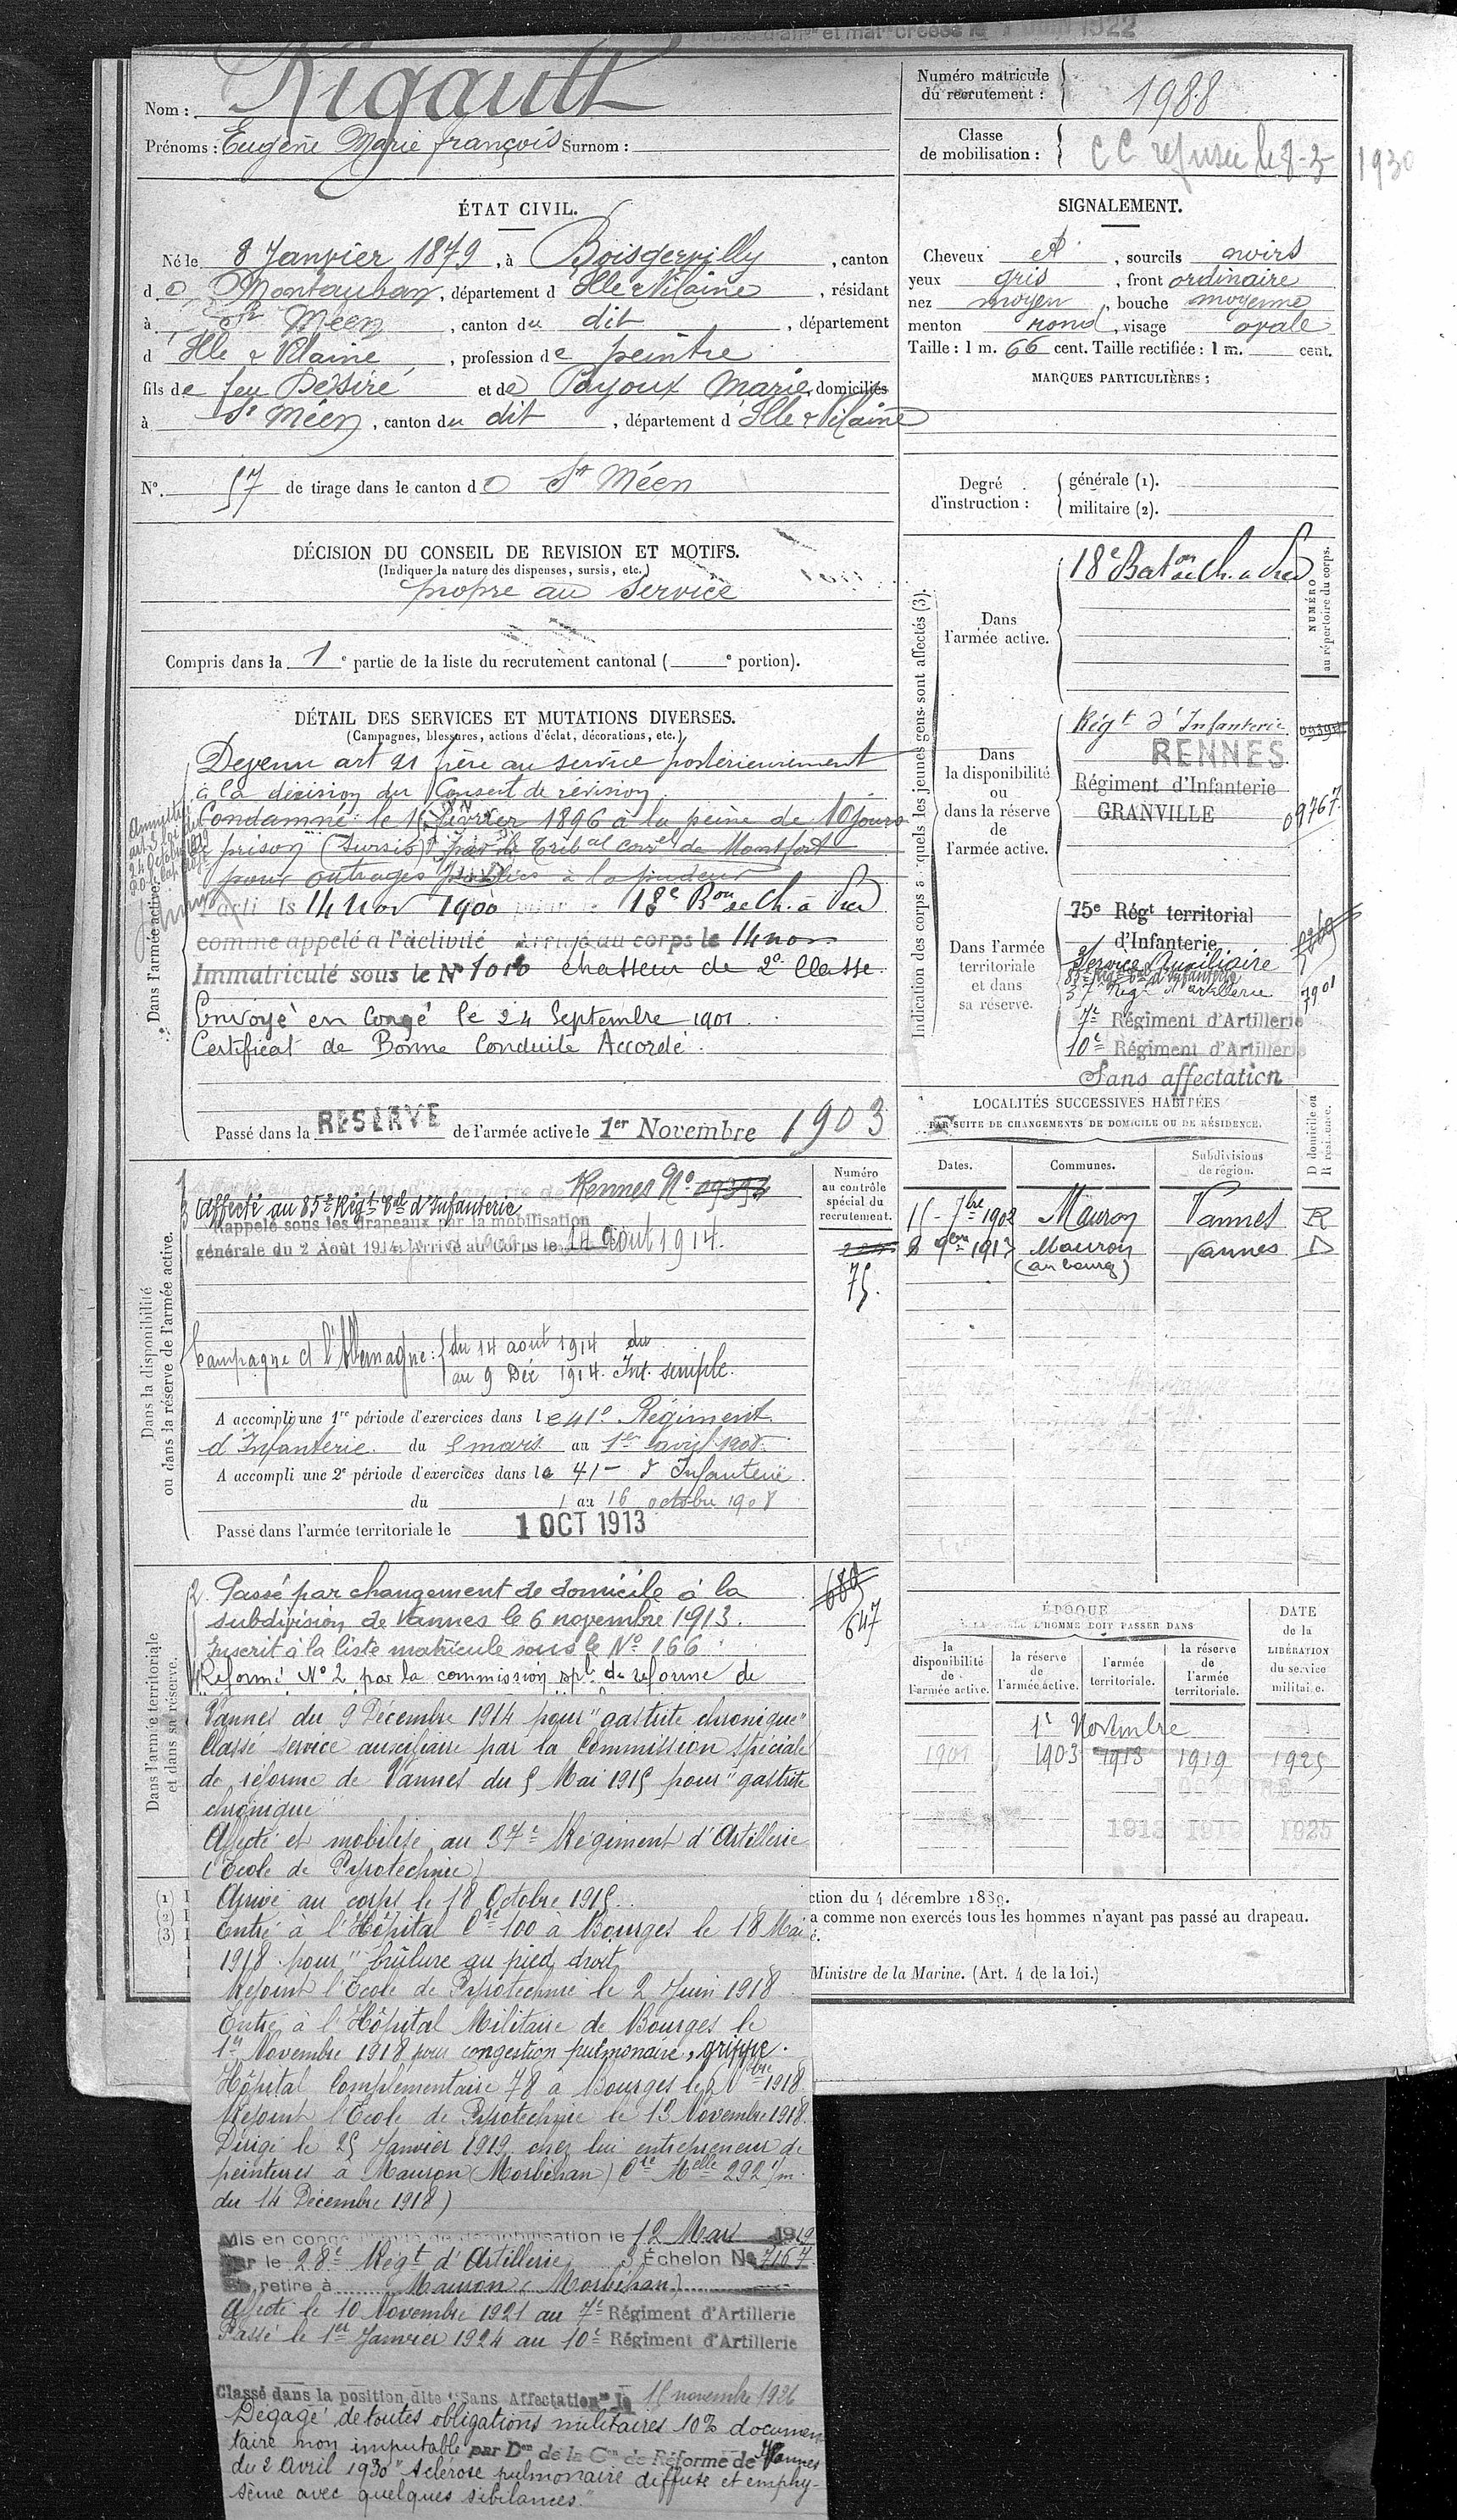 Nom : Rigault
Prénoms : Eugène Marie françois Surnom :
Numéro matricule du recrutement : 1988
Classe de mobilisation : CC refusée le 8-3-1930
ÉTAT CIVIL.
Né le 8 Janvier 1879, à Boisgervilly, canton
de Montauban, département d'Ille & Vilaine, résidant
à St Méen, canton du dit, département
d'Ille & Vilaine, profession de peintre
fils de feu Désiré et de Payoux Marie, domiciliés
à St Méen, canton du dit, département d'Ille & Vilaine
N°. 57 de tirage dans le canton de St Méen
DÉCISION DU CONSEIL DE REVISION ET MOTIFS.
(Indiquer la nature des dispenses, sursis, etc.)
propre au Service
Compris dans la 1e partie de la liste du recrutement cantonal ( e portion).
SIGNALEMENT.
Cheveux et, sourcils noirs
yeux gris, front ordinaire
nez moyen, bouche moyenne
menton rond, visage ovale
Taille : 1 m. 66 cent. Taille rectifiée : 1 m. cent.
MARQUES PARTICULIÈRES :
Degré d'instruction : générale (1).
militaire (2).
Indication des corps auxquels les jeunes gens sont affectés (3).
NUMÉRO au répertoire du corps.
Dans l'armée active.
18e Baton de Ch. à Pied
Dans la disponibilité ou dans la réserve de l'armée active.
Régt d'Infanterie
RENNES
Régiment d'Infanterie
GRANVILLE 09767
Dans l'armée territoriale et dans sa réserve.
75e Régt territorial
d'Infanterie
Service Auxiliaire
85e Régt tal d'Infanterie
37e Régt d'artillerie 7901
7e Régiment d'Artillerie
10e Régiment d'Artillerie
Sans affectation
DÉTAIL DES SERVICES ET MUTATIONS DIVERSES.
(Campagnes, blessures, actions d'éclat, décorations, etc.)
Dans l'armée active.
Devenu art 21 frère au service postérieurement
à la décision du Conseil de révision.
Condamné le 1 février 1896 à la peine de 10 jours
de prison (Sursis) par le Tribal correl de Montfort
pour outrages publics à la pudeur
Parti le 14 Nov 1900 pour le 18e Bon de Ch. à Pied
comme appelé à l'activité Arrivé au corps le 14 nov
Immatriculé sous le N° 1018 chasseur de 2e Classe.
Envoyé en Congé le 24 Septembre 1901.
Certificat de Bonne Conduite Accordé.
Passé dans la RÉSERVE de l'armée active le 1er Novembre 1903
Dans la disponibilité ou dans la réserve de l'armée active.
Numéro au contrôle spécial du recrutement.
Rennes N° 09393
Affecté au 85e Régt Tal d'Infanterie
Rappelé sous les drapeaux par la mobilisation
générale du 2 Août 1914. Arrivé au Corps le 14 août 1914.
75.
Campagne c/ l'Allemagne : du 14 aout 1914 au
au 9 Déc 1914. Int. simple.
A accompli une 1re période d'exercices dans le 41e Régiment
d'Infanterie du 5 mars au 1er avril 1905.
A accompli une 2e période d'exercices dans le 41e d'Infanterie
du 1 au 16 octobre 1908
Passé dans l'armée territoriale le 1 OCT 1913
LOCALITÉS SUCCESSIVES HABITÉES
PAR SUITE DE CHANGEMENTS DE DOMICILE OU DE RÉSIDENCE.
D domicile ou R résidence.
Dates. Communes. Subdivisions de région.
15 - 7bre 1902 Mauron Vannes R
8 9bre 1913 Mauron (au bourg) Vannes D
Dans l'armée territoriale et dans sa réserve.
Passé par changement de domicile à la
subdivision de Vannes le 6 novembre 1913.
Inscrit à la liste matricule sous le N° 166
647
Réformé N° 2 par la commission sple de réforme de
Vannes du 9 Décembre 1914 pour "gastrite chronique"
Classé service auxiliaire par la Commission Spéciale
de réforme de Vannes du 5 Mai 1915 pour "gastrite
chronique"
Affecté et mobilisé au 37e Régiment d'Artillerie
(Ecole de Pyrotechnie)
Arrivé au corps le 18 Octobre 1915.
Entré à l'Hôpital Cre 100 à Bourges le 18 Mai
1918 pour "brûlure au pied droit
Rejoint l'Ecole de Pyrotechnie le 2 Juin 1918
Entré à l'Hôpital Militaire de Bourges le
1er Novembre 1918 pour congestion pulmonaire, grippe.
Hôpital Complémentaire 78 à Bourges le 9bre 1918
Rejoint l'Ecole de Pyrotechnie le 13 Novembre 1918.
Dirigé le 25 Janvier 1919 chez lui entrepreneur de
peintures à Mauron (Morbihan) Cre Melle 292
du 14 Décembre 1918)
Mis en congé illimité de démobilisation le 12 Mars 1919
Par le 28e Régt d'Artillerie 3 Echelon N° 7167
Se retire à Mauron (Morbihan)
Affecté le 10 Novembre 1921 au 7e Régiment d'Artillerie
Passé le 1er Janvier 1924 au 10e Régiment d'Artillerie
Classé dans la position dite "Sans Affectation" le 15 novembre 1926
Dégagé de toutes obligations militaires 10% documen
taire non imputable par Don de la Con de Réforme de Vannes
du 2 Avril 1930 "Sclérose pulmonaire diffuse et emphy-
sème avec quelques sibilances."
ÉPOQUE
L'HOMME DOIT PASSER DANS
la disponibilité de l'armée active. la réserve de l'armée active. l'armée territoriale. la réserve de l'armée territoriale. DATE de la LIBÉRATION du service militaire.
1er Novembre
1901 1903 1913 1919 1925
1913 1919 1925
(1)
(2)
(3)
ction du 4 décembre 1889.
a comme non exercés tous les hommes n'ayant pas passé au drapeau.
Ministre de la Marine. (Art. 4 de la loi.)